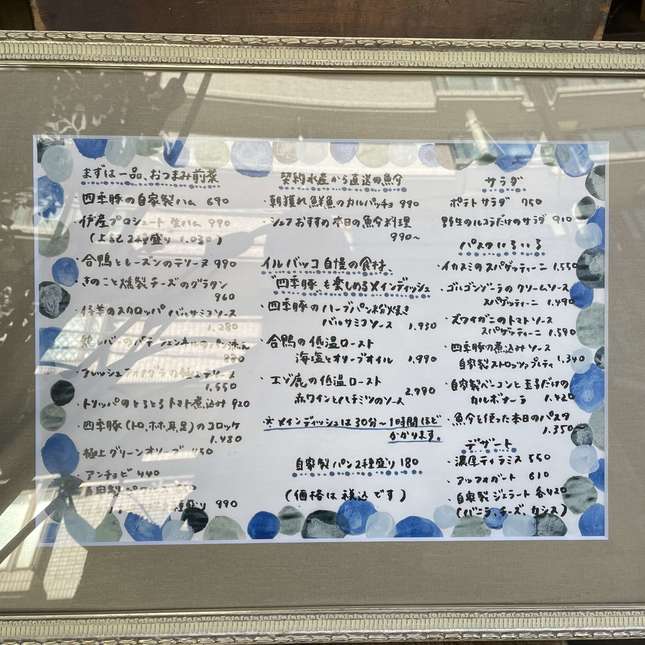 まずは一品、おつまみ前菜
四季豚の自家製ハム 690
伊産プロシュート 生ハム 990
(上記2種盛り 1.030)
・合鴨とレーズンのテリーヌ 990
きのこと燻製チーズのグラタン
960
バルサミコソース
1.280
1.550
・トリッパのとろとろトマト煮込み 920
・四季豚(トロ、ホホ、耳、足)のコロッケ
1.480
・極上グリーンオリーブ
・アンチョビ 440
盛り 990
契約水産から直送の魚介
・朝獲れ鮮魚のカルパッチョ 990
・シェフおすすめ本日の魚介料理
990~
イルバッコ自慢の食材
"四季豚"も楽しめるメインディッシュ
・四季豚のハーブパン粉焼き
バルサミコソース 1.950
・合鴨の低温ロースト
海塩とオリーブオイル 1.990
・エゾ鹿の低温ロースト 2.990
赤ワインとハチミツのソース
※メインディッシュは30分~1時間ほど
かかります。
自家製パン2種盛り 180
(価格は税込です)
サラダ
ポテトサラダ 750
野生のルコラだけのサラダ 910
パスタいろいろ
・イカスミのスパゲッティーニ 1.550
・ゴルゴンゾーラのクリームソース
スパゲッティーニ 1.490
・ズワイガニのトマトソース
スパゲッティーニ 1.590
・四季豚の煮込みソース
自家製ストロッツァプレティ 1.340
・自家製ベーコンと玉子だけの
カルボナーラ 1.420
・魚介を使った本日のパスタ
1.350
デザート
・濃厚ティラミス 550
・アッフォガート 610
・自家製ジェラート 各420
(バニラ、チーズ、カシス)